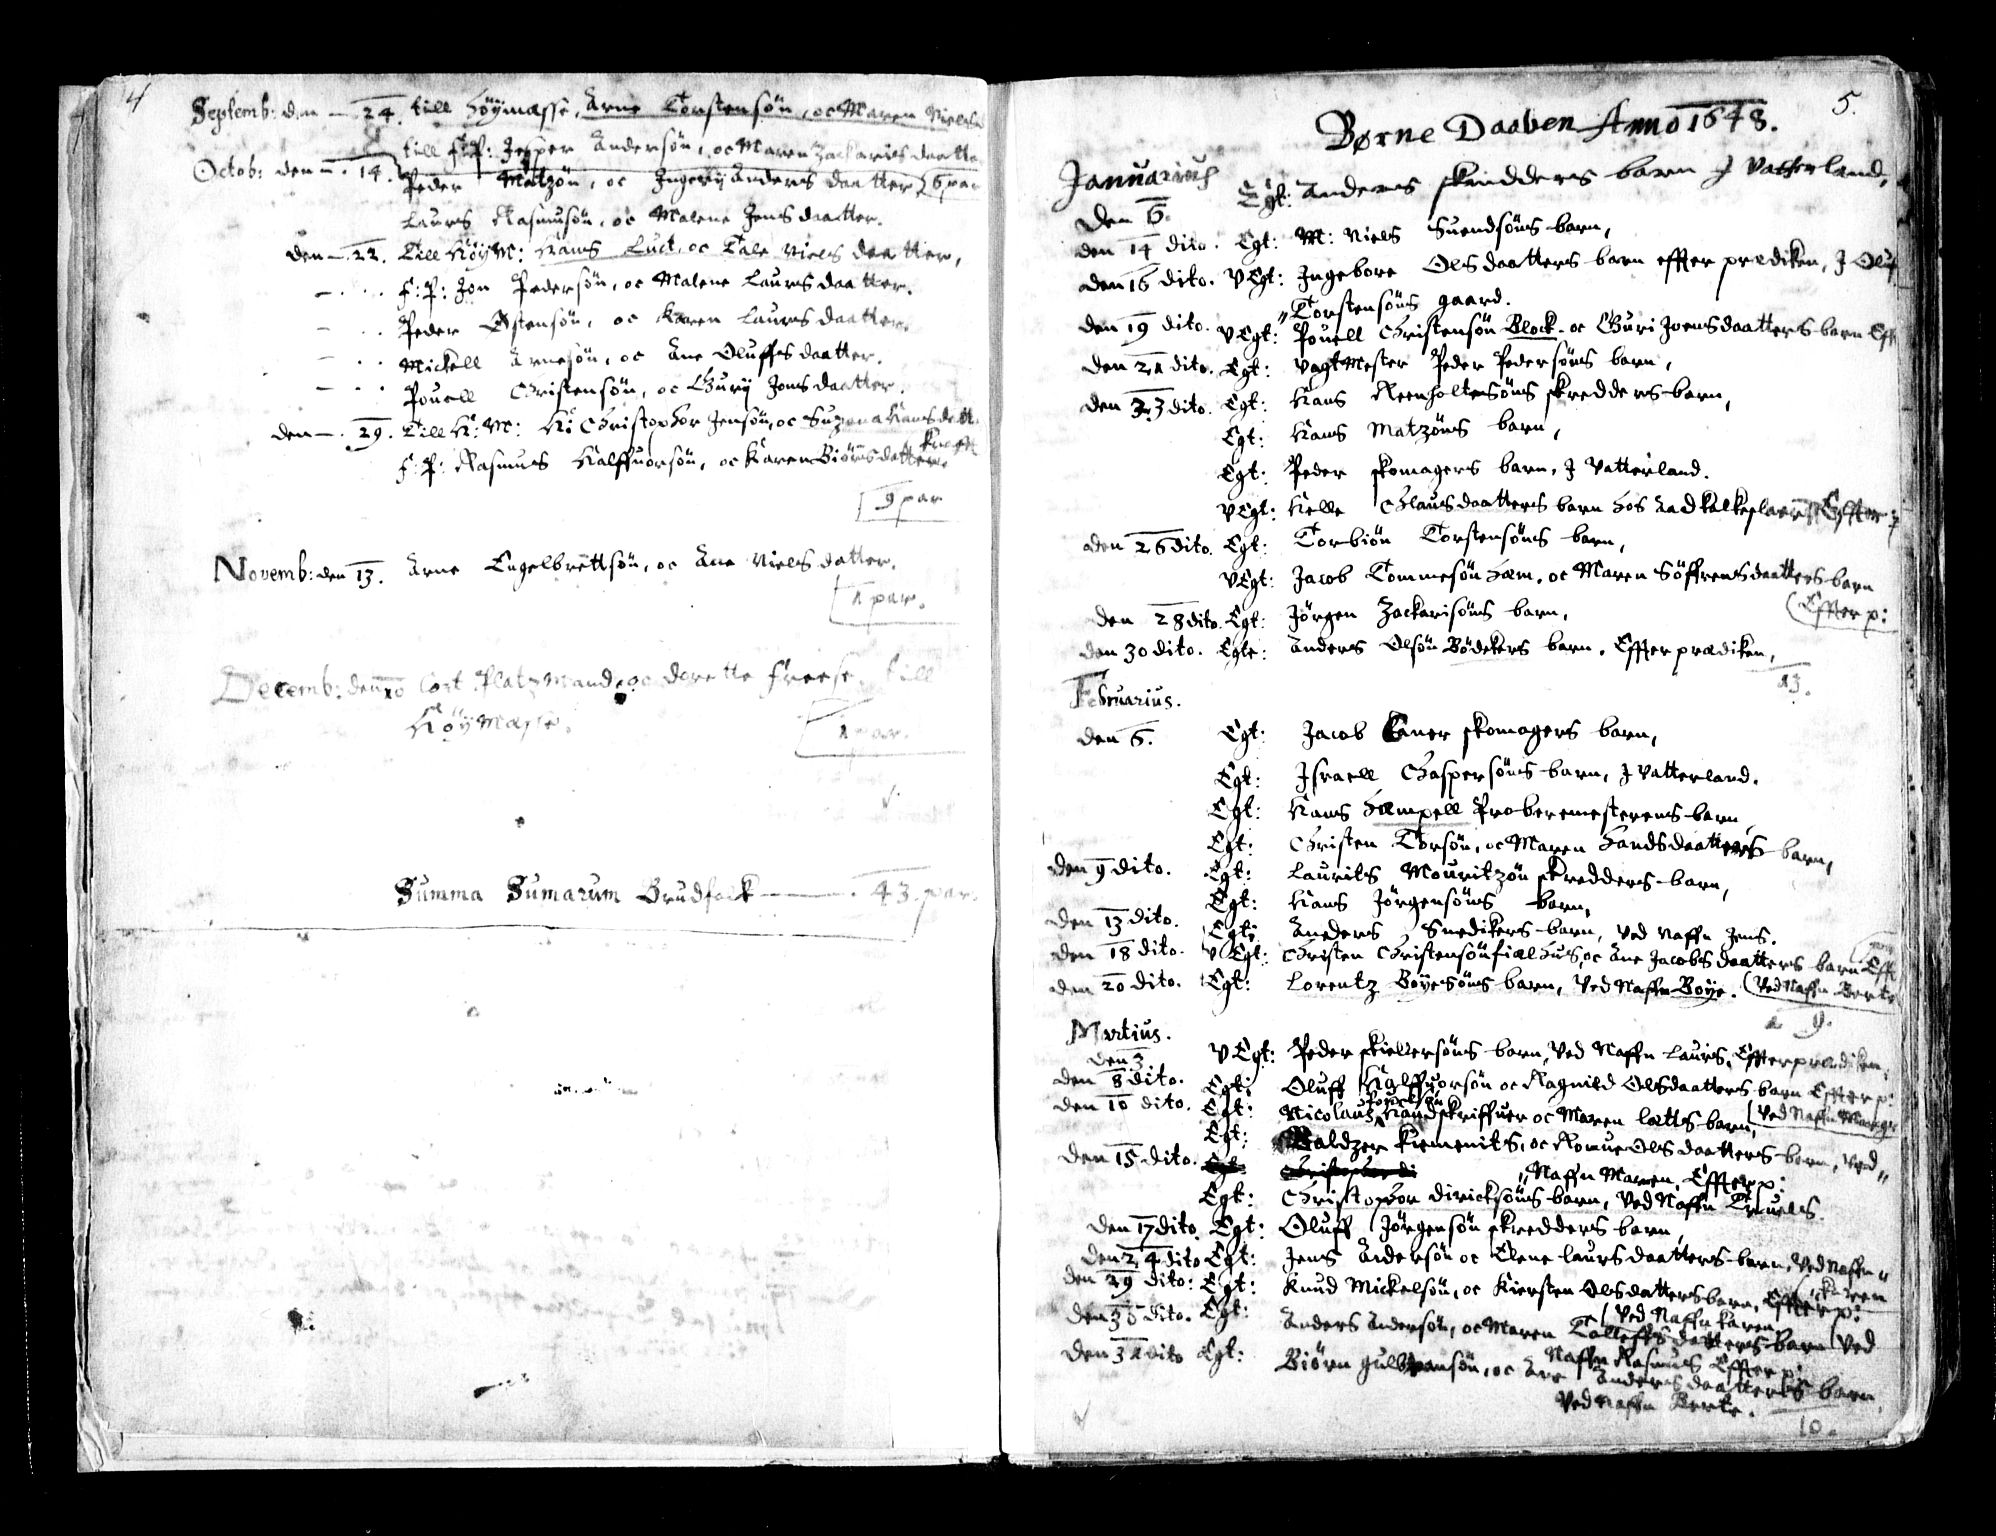 4
Septemb: den — 24. till Höÿmasse, Arne Torstensön, oc Maren Niels
till F:P: Jesper Andersön, oc Maren Zackariis daatter
Octob: den — 14. Peder Matzön, oc Ingerÿ Anders daatter 6 par
Laurs Rasmusön, oc Malene Jens daatter.
den — 22. Till HöÿM: Hans Luct, oc Tale Niels daatter,
— . . . F:P: Jon Pedersön, oc Malene Laurs daatter.
— . . Peder Östensön, oc Karen Laurs daatter.
— . . Mickell Arnesön, oc Ane Oluffs daatter.
— . . Pouell Christensön, oc Gurÿ Jons daatter.
den — 29. Till H:M: H: Christophor Jensön, oc Suzana Hans datt.
F:P: Rasmus Halffuorsön, oc Karen Biörns datter.
9 par
Novemb: den 13. Arne Engelbrettsön, oc Ane Niels datter.
1 par.
Decemb: den 10 Cort Platzmand, oc Dorette Freese. till
HöÿMasse.
1 par.
Summa Sumarum Brudfock — . 43. par.
5.
Børne Daaben Anno 1648.
Januarius
Den 6. Egt: Anders skredders barn J Vatterland,
den 14 dito. Egt: M: Niels Suendsöns barn,
den 16 dito. VEgt: Ingebore Olsdaatters barn effter prædiken, J Oluf
" Torstensöns gaard.
den 19 dito. VEgt: Pouell Christensön Block. oc Guri Joensdaatters barn Eff
den 21 dito. Egt: VagtMester Peder Pedersöns barn,
den 23 dito. Egt: Hans Reenholtesöns skredders barn,
Egt: Hans Matzöns barn,
Egt: Peder skomagers barn, J Vatterland.
VEgt: Helle Clausdaatters barn hos Aad Effter p
den 26 dito. Egt: Torbiön Torstensöns barn,
VEgt: Jacob Tommesön Ham, oc Maren Söffrensdaatters barn
(Effter p:
den 28 dito. Egt: Jörgen Zackarisöns barn,
den 30 dito. Egte: Anders Olsön Bödekers barn. Effter prædiken,
13.
Februarius.
den 6. Egt: Jacob skomagers barn,
Egt: Israell Caspersöns barn, J Vatterland.
Egt: Hans Hampell Proberemesterens barn
Egt: Christen Torsön, oc Maren Handsdaatters barn,
den 9 dito. Egt: Laurits Mouritzön skredders barn,
Egt: Hans Jörgensöns barn,
den 13 dito. Egt: Anders Snedikers barn, Ved Naffn Jens.
den 18 dito. V Egt: Christen Christensön fielhus, oc Ane Jacobs daatters barn Eff
den 20 dito. Egt: Lorentz Böÿesöns barn, Ved Naffn Böÿe. (Ved Naffn Berte
9.
Martius.
den 3. V Egt: Peder skielersöns barn, Ved Naffn Laurs, Effter prædiken.
den 8 dito. Egt: Oluff Halffuorsön oc Ragnild Olsdaatters barn Effter p:
den 10 dito. Egt: Nicolaus Handskriffuer oc Maren Latts barn, (Ved Naffn
Egt: Baldzer Kiemenits, oc Olsdaatters barn, Ved "
den 15 dito. " Naffn Maren, Effter p:
Egt: Christophor Diricksöns barn, Ved Naffn Truels.
den 17 dito. Egt: Oluff Jörgensön skredders barn,
den 24 dito Egt: Jens Andersön oc Elene Laursdaatters barn, Ved Naffn "
" Karen
den 29 dito: Egt: Knud Mickelsön, oc Kiersten Olsdatters barn, Effter p:
(Ved Naffn Karen.
den 30 dito. Egt: Anders Andersön, oc Maren Tolleffs datters barn (Ved
Naffn Rasmus Effter p:
den 31 dito Egt: Biörn Gulbransön, oc Ane Anders daatters barn,
Ved Naffn Berte.
10.